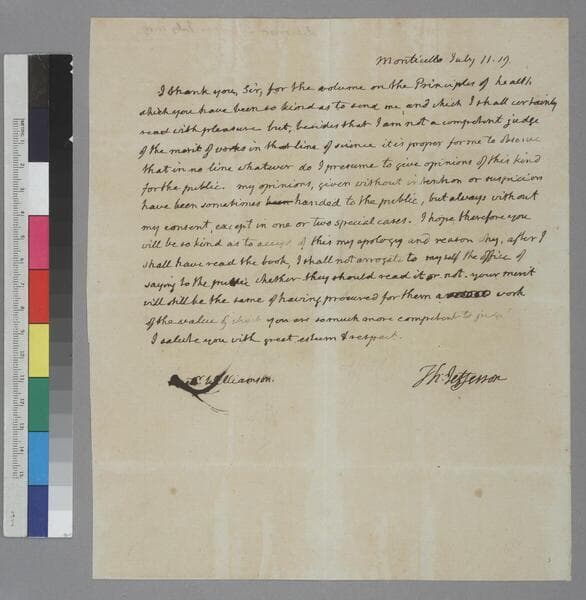 Monticello July 11. 19.
I thank you, Sir, for the volume on the Principles of health
which you have been so kind as to send me and which I shall certainly
read with pleasure but, besides that I am not a competent judge
of the merit of works in that line of science it is proper for me to observe
that in no line whatever do I presume to give opinions of this kind
for the public. my opinions, given without intention or suspicion
have been sometimes been handed to the public, but always without
my consent, except in one or two special cases. I hope therefore you
will be so kind as to accept of this my apology and reason why, after I
shall have read the book, I shall not arrogate to myself the office of
saying to the public whether they should read it or not. your merit
will still be the same of having procured for them a work
of the value of which you are so much more competent to judge
I salute you with great esteem & respect.
Williamson.
Th: Jefferson